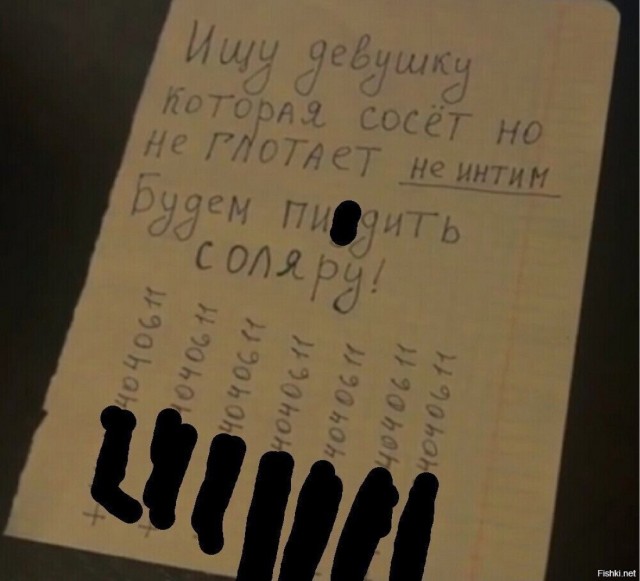 Ищу девушку
которая сосёт но
не глотает не интим
Будем пи дить
соляру!
4040611
4040611
4040611
4040611
4040611
4040611
4040611
Fishki.net